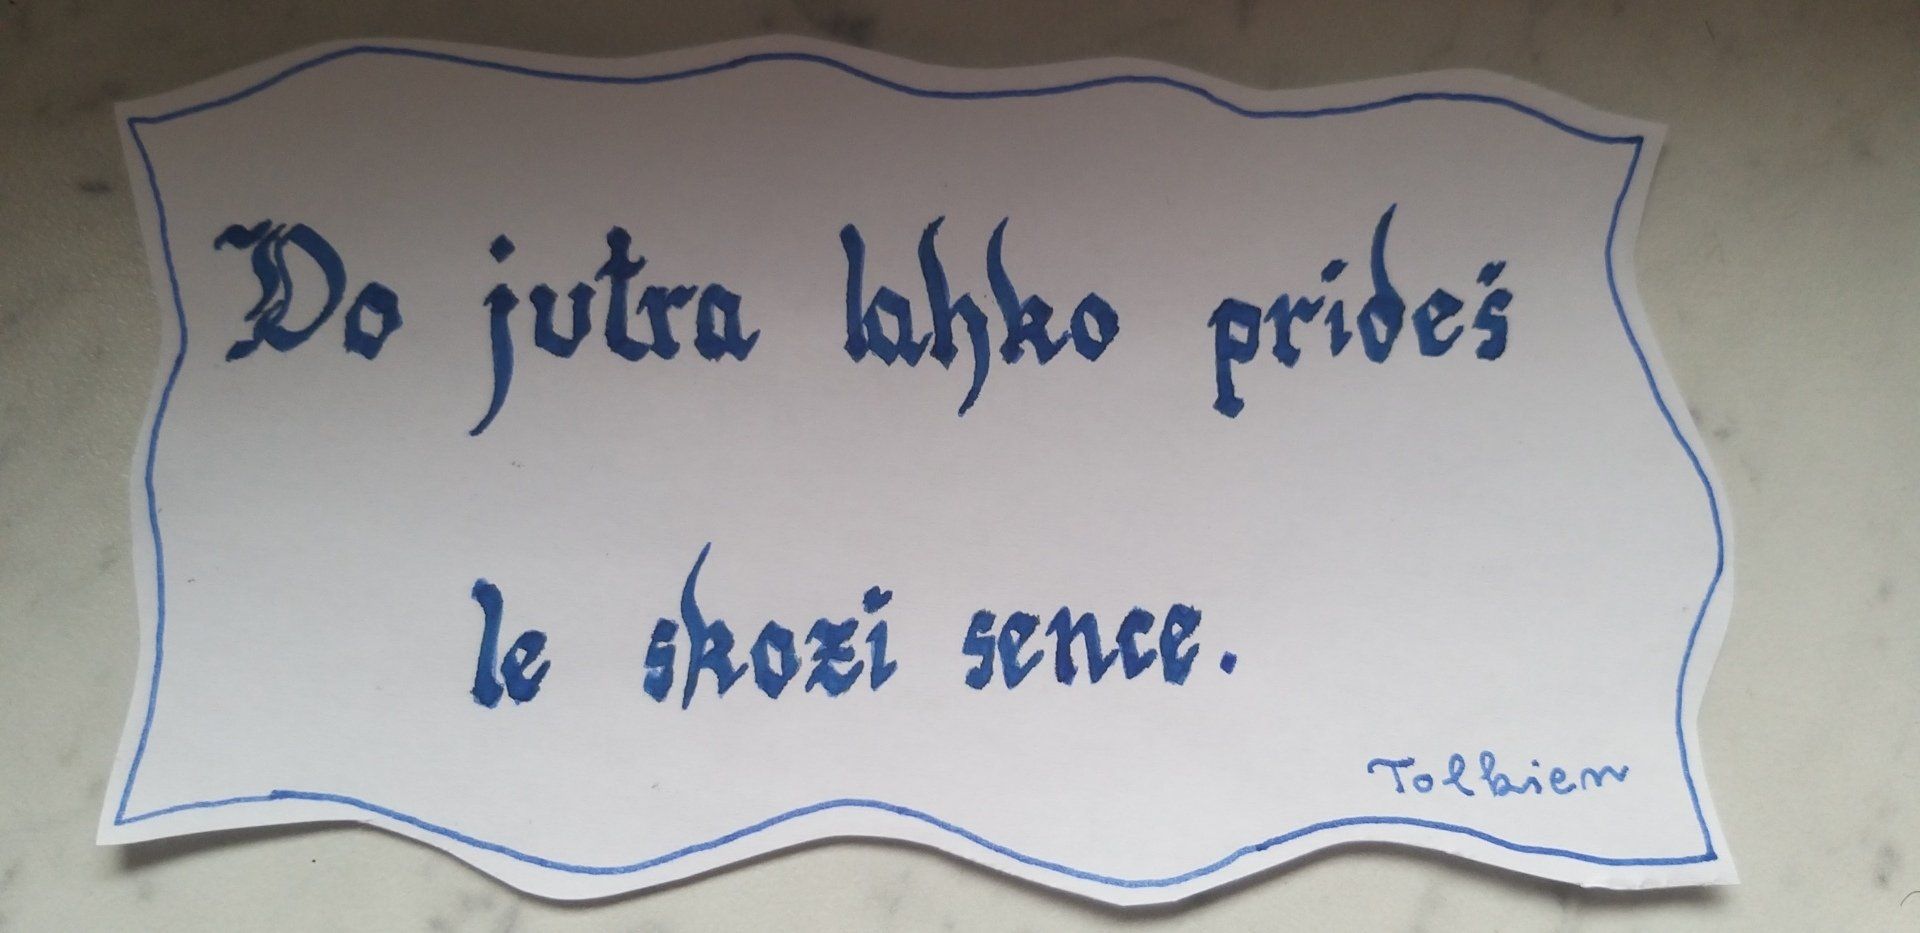 Do jutra lahko prideš
le skozi sence.
Tolkien